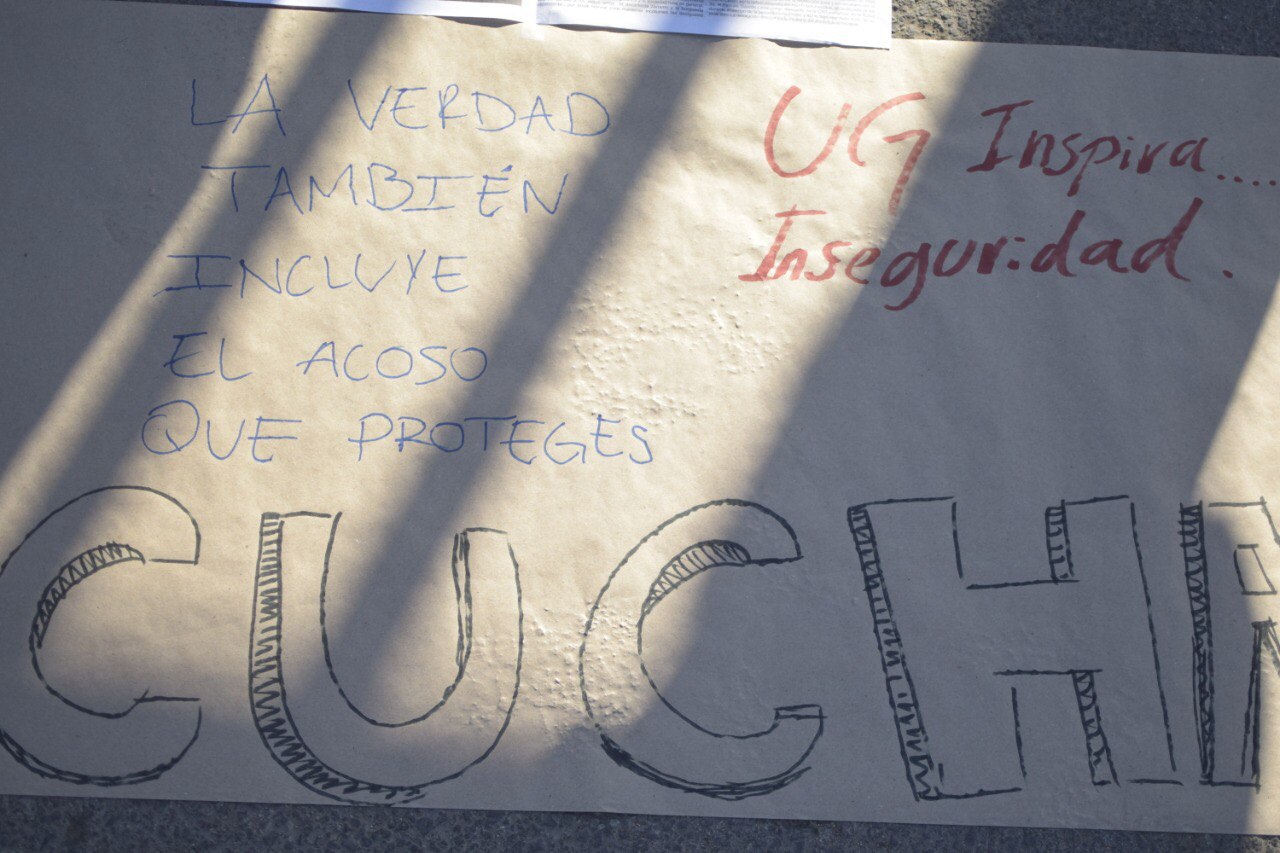 LA VERDAD
TAMBIÉN
INCLUYE
EL ACOSO
QUE PROTEGES
UG Inspira....
Inseguridad.
CUCHR